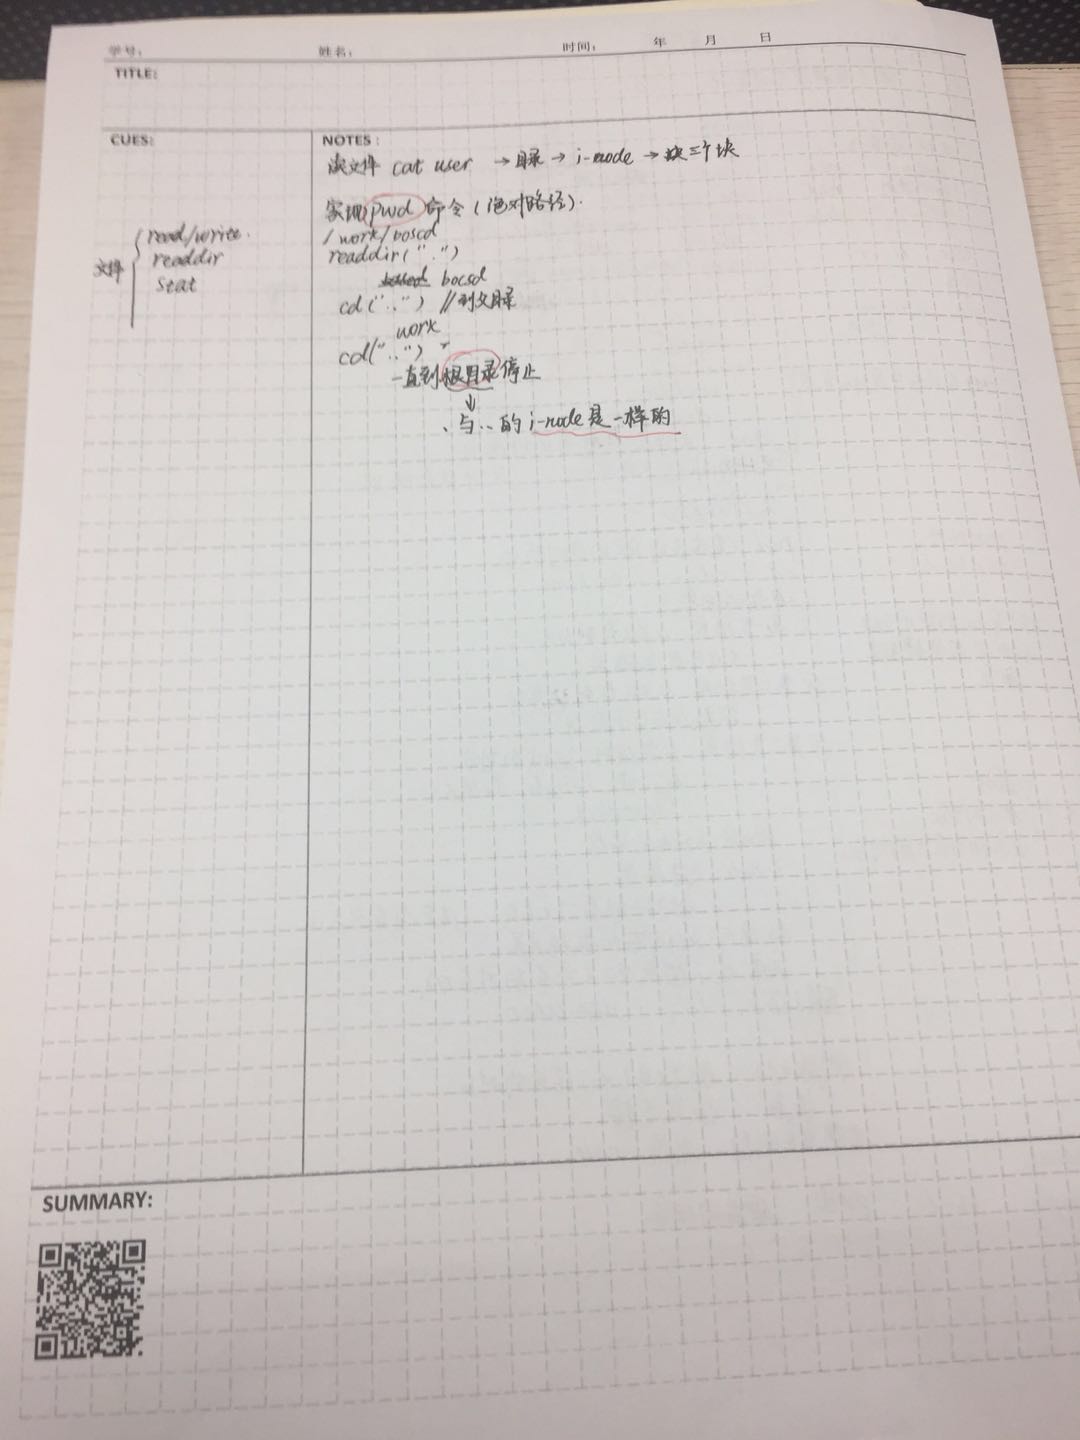 学号： 姓名： 时间： 年 月 日
TITLE:
CUES:
文件
read/write.
readdir
stat
NOTES：
读文件 cat user → 目录 → i-node → 块三个块
实现 pwd 命令 (绝对路径).
/work/boscd
readdir(".")
bocsd
cd("..") //到父目录
work
cd("..")
一直到根目录停止
↓
.与..的 i-node是一样的
SUMMARY: